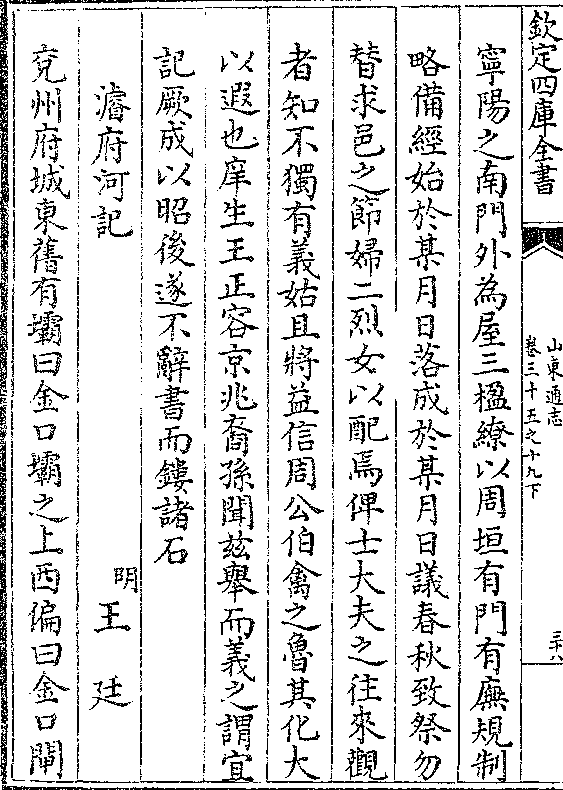 欽定四庫全書
山東通志
卷三十五之十九下
三十八
寧陽之南門外為屋三楹繚以周垣有門有廡規制
略備經始於某月日落成於某月日議春秋致祭勿
替求邑之節婦二烈女以配焉俾士大夫之往來觀
者知不獨有義姑且將益信周公伯禽之魯其化大
以遐也庠生王正容京兆裔孫聞茲舉而義之謂宜
記厥成以昭後遂不辭書而鏤諸石
濬府河記
明 王 廷
兗州府城東舊有壩曰金口壩之上西偏曰金口閘